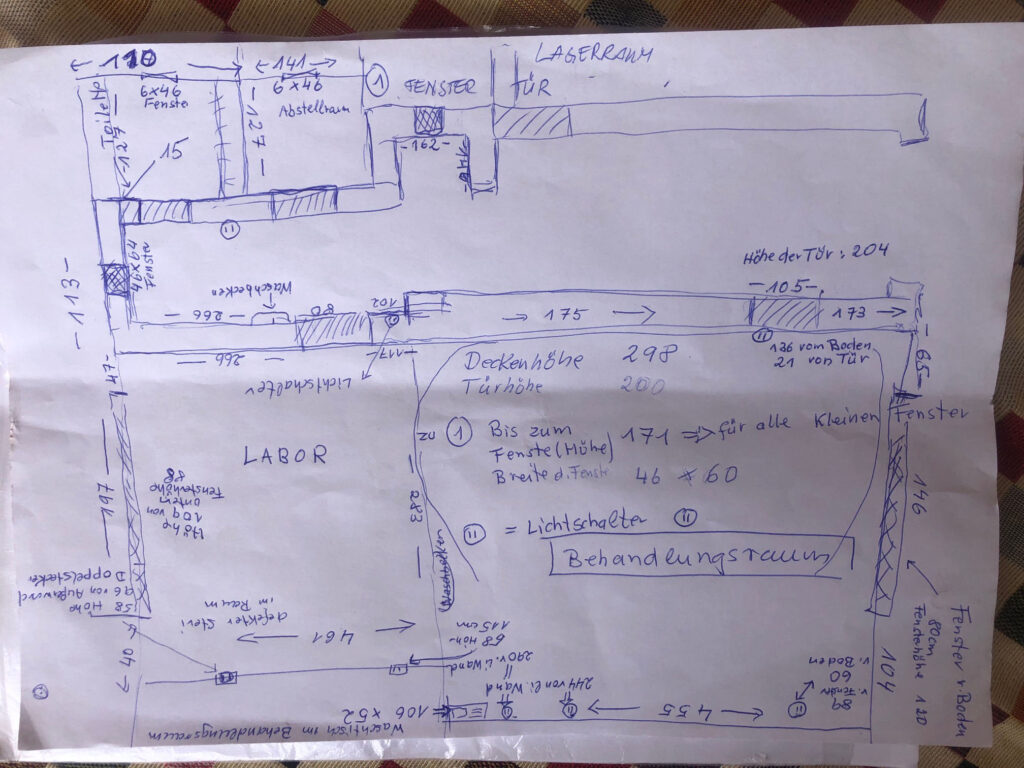 LAGERRAUM
110
141
1
FENSTER
TÜR
6x46
Fenster
6x46
Abstellraum
Toilette
127
127
15
162
46x64
Fenster
113
Höhe der Tür: 204
105
Waschbecken
266
80
102
175
173
266
117
Lichtschalter
136 vom Boden
21 von Tür
65
47
Deckenhöhe 298
Türhöhe 200
1 Bis zum
Fenste (Höhe) 171 => für alle Kleinen Fenster
Breite d. Fenste 46 x 60
LABOR
197
Höhe
109 von
unten
Fensterhöhe
88
283
Waschbecken
= Lichtschalter
Behandlungsraum
146
Fenster v. Boden
80cm
Fensterhöhe 120
104
Doppelstecker
96 von Außenwand
58 Höhe
40
defekter Steri
im Raum
461
115cm
68 Höh-
290 v. li. Wand
244 von li. Wand
455
89
v. Fenster
60
v. Boden
106 x 52
Waschtisch im Behandlungsraum